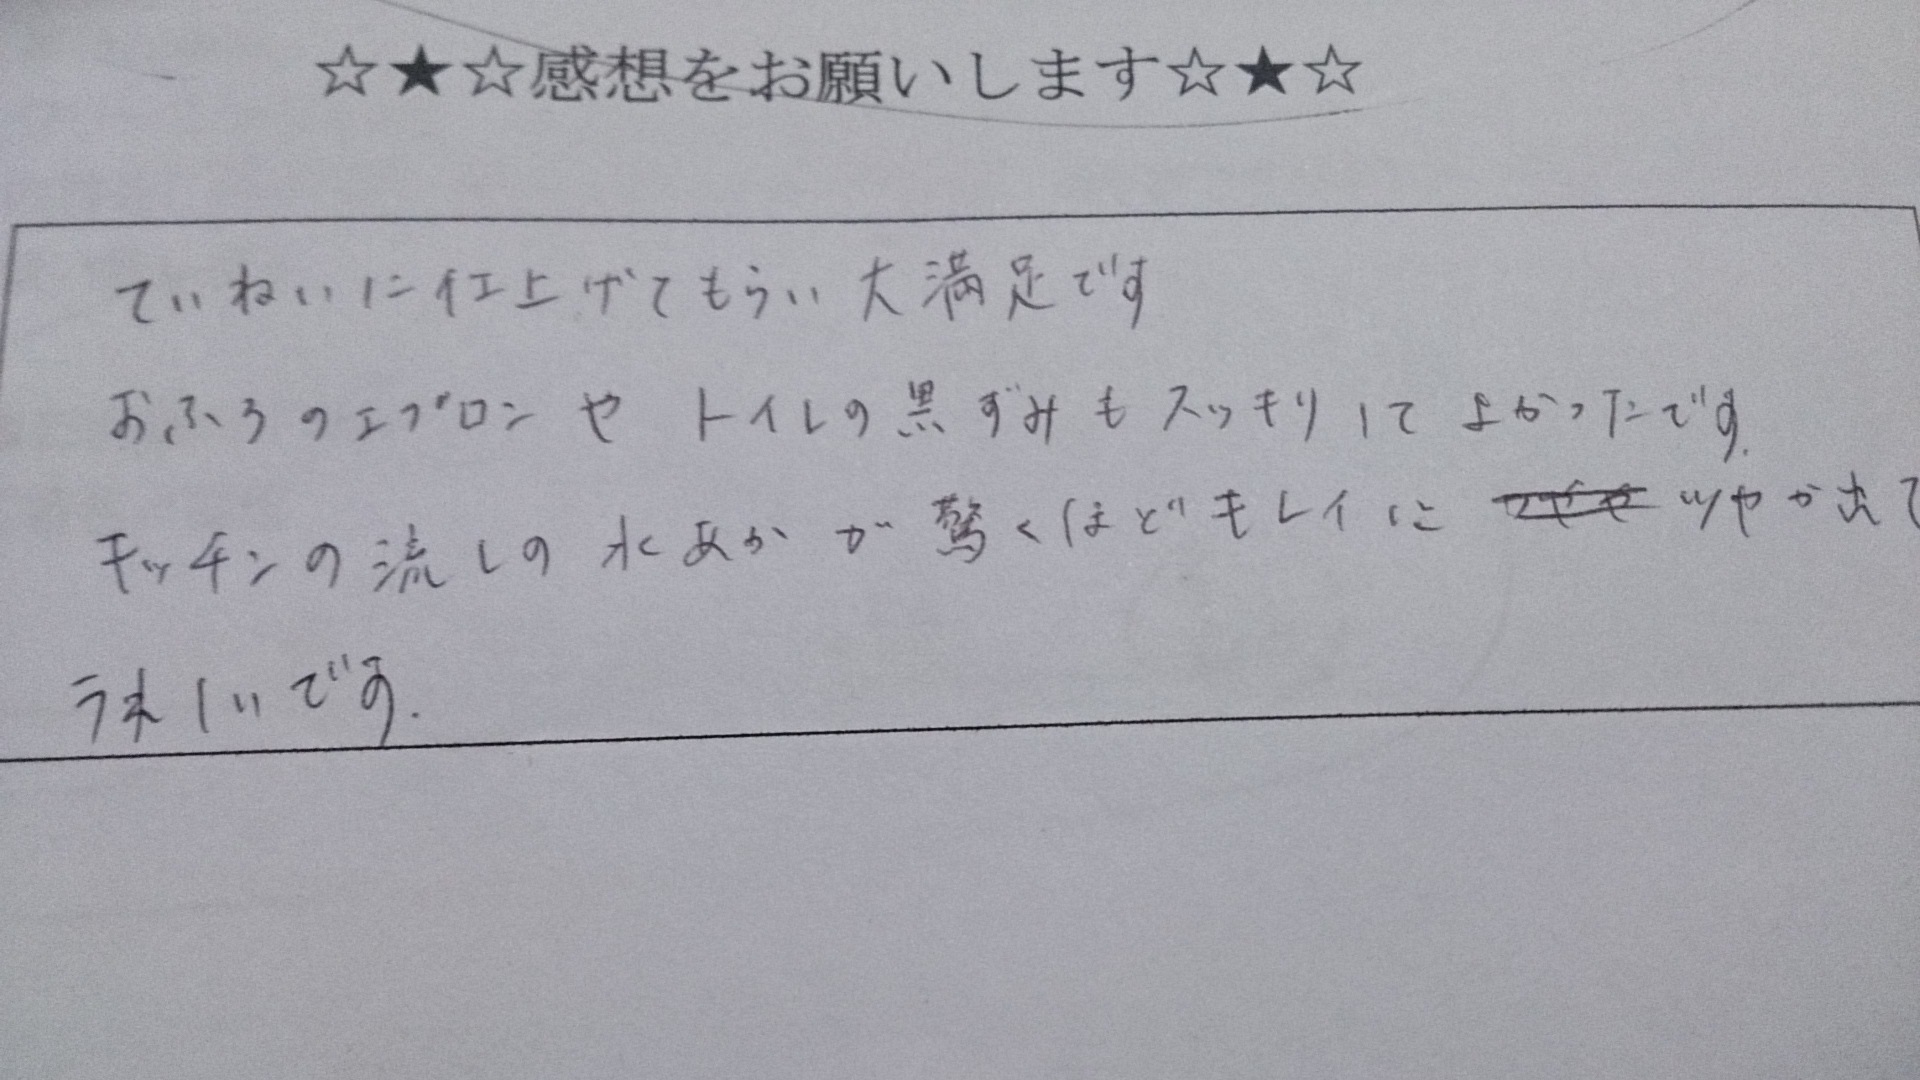 ☆★☆感想をお願いします☆★☆
ていねいに仕上げてもらい大満足です
おふろのエプロンや トイレの黒ずみもスッキリして よかったです。
キッチンの流しの水あかが驚くほどキレイに ツヤが出て
うれしいです。